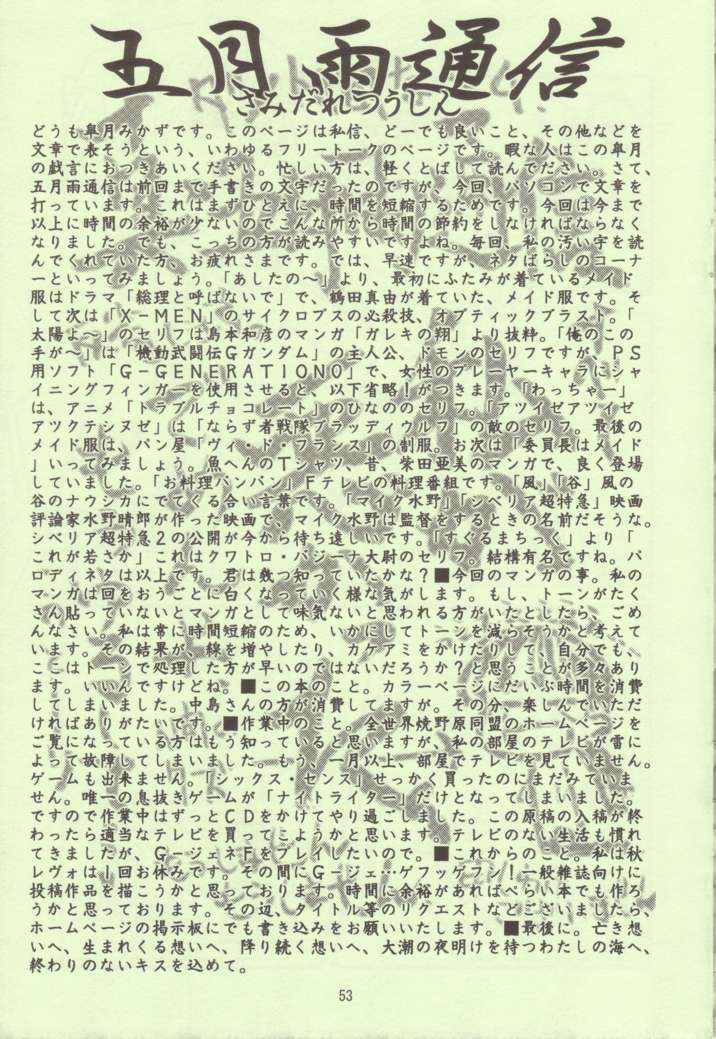 五月雨通信
さみだれつうしん
どうも皐月みかずです。このページは私信、どーでも良いこと、その他などを
文章で表そうという、いわゆるフリートークのページです。暇な人はこの皐月
の戯言におつきあいください。忙しい方は、軽くとばして読んでください。さて、
五月雨通信は前回まで手書きの文字だったのですが、今回、パソコンで文章を
打っています。これはまずひとえに、時間を短縮するためです。今回は今まで
以上に時間の余裕が少ないのでこんな所から時間の節約をしなければならなく
なりました。でも、こっちの方が読みやすいですよね。毎回、私の汚い字を読
んでくれていた方、お疲れさまです。では、早速ですが、ネタばらしのコーナ
ーといってみましょう。「あしたのへ」より、最初にふたみが着ているメイド
服はドラマ「総理と呼ばないで」で、鶴田真由が着ていた、メイド服です。そ
して次は「X-MEN」のサイクロプスの必殺技、オプティックブラスト。「
太陽よ～」のセリフは島本和彦のマンガ「ガレキの翔」より抜粋。「俺のこの
手が～」は「機動武闘伝Gガンダム」の主人公、ドモンのセリフですが、PS
用ソフト「G-GENERATION0」で、女性のプレーヤーキャラにシャ
イニングフィンガーを使用させると、以下省略!がつきます。「わっちゃー」
は、アニメ「トラブルチョコレート」のひなののセリフ。「アツイゼアツイゼ
アツクテシヌゼ」は「ならず者戦隊ブラッディウルフ」の敵のセリフ。最後の
メイド服は、パン屋「ヴィ・ド・フランス」の制服。お次は「委員長はメイド
」いってみましょう。魚へんのTシャツ、昔、柴田亜美のマンガで、良く登場
していました。「お料理バンバン」Fテレビの料理番組です。「風」「谷」風の
谷のナウシカにでてくる合い言葉です。「マイク水野」「シベリア超特急」映画
評論家水野晴郎が作った映画で、マイク水野は監督をするときの名前だそうな。
シベリア超特急2の公開が今から待ち遠しいです。「すぐるまちっく」より「
これが若さか」これはクワトロ・バジーナ大尉のセリフ。結構有名ですね。パ
ロディネタは以上です。君は幾つ知っていたかな?■今回のマンガの事。私の
マンガは回をおうごとに白くなっていく様な気がします。もし、トーンがたく
さん貼っていないとマンガとして味気ないと思われる方がいたとしたら、ごめ
んなさい。私は常に時間短縮のため、いかにしてトーンを減らそうかと考えて
います。その結果が、線を増やしたり、カケアミをかけたりして、自分でも、
ここはトーンで処理した方が早いのではないだろうか?と思うことが多々あり
ます。いいんですけどね。■この本のこと。カラーページにだいぶ時間を消費
してしまいました。中島さんの方が消費してますが。その分、楽しんでいただ
ければありがたいです。■作業中のこと。全世界焼野原同盟のホームページを
ご覧になっている方はもう知っていると思いますが、私の部屋のテレビが雷に
よって故障してしまいました。もう、一月以上、部屋でテレビを見ていません。
ゲームも出来ません。「シックス・センス」せっかく買ったのにまだみていま
せん。唯一の息抜きゲームが「ナイトライター」だけとなってしまいました。
ですので作業中はずっとCDをかけてやり過ごしました。この原稿の入稿が終
わったら適当なテレビを買ってこようかと思います。テレビのない生活も慣れ
てきましたが、G-ジェネFをプレイしたいので。■これからのこと。私は秋
レヴォは1回お休みです。その間にG-ジェ…ゲフッゲフン!一般雑誌向けに
投稿作品を描こうかと思っております。時間に余裕があればぺらい本でも作ろ
うかと思っております。その辺、タイトル等のリクエストなどございましたら、
ホームページの掲示板にでも書き込みをお願いいたします。■最後に。亡き想
いへ、生まれくる想いへ、降り続く想いへ、大潮の夜明けを待つわたしの海へ、
終わりのないキスを込めて。
53